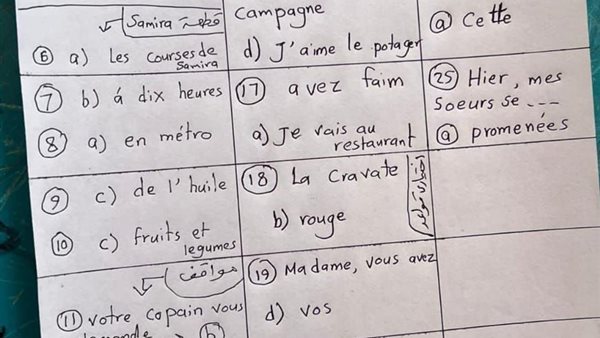 قطعة Samira
6 a) Les courses de
Samira
7 b) á dix heures
8 a) en métro
9 c) de l'huile
10 c) fruits et
legumes
مواقف
11 votre copain vous
b)
Campagne
d) J'aime le potager
17 avez faim
a) Je vais au
restaurant
18 La Cravate
b) rouge
19 Madame, vous avez
d) vos
a Cette
25 Hier, mes
Soeurs se ---
a promenées